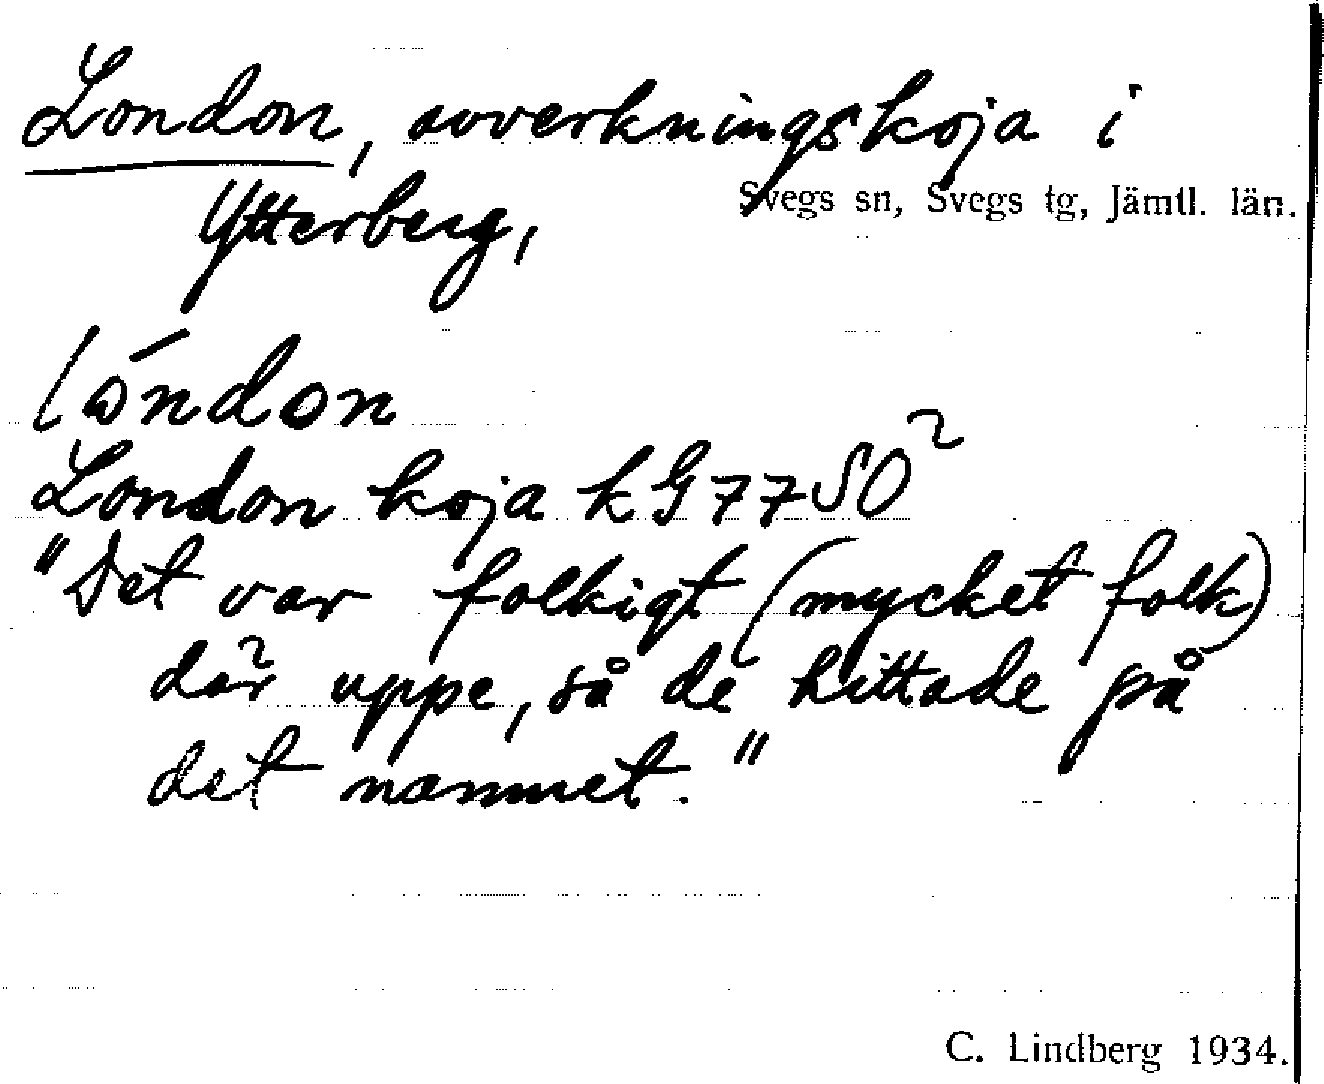 London, avverkningskoja i
Svegs sn, Svegs tg, Jämtl. län.
Ytterberg,
lóndon
London koja kG77SO²
"Det var folkigt (mycket folk)
där uppe, så de hittade på
det namnet."
C. Lindberg 1934.